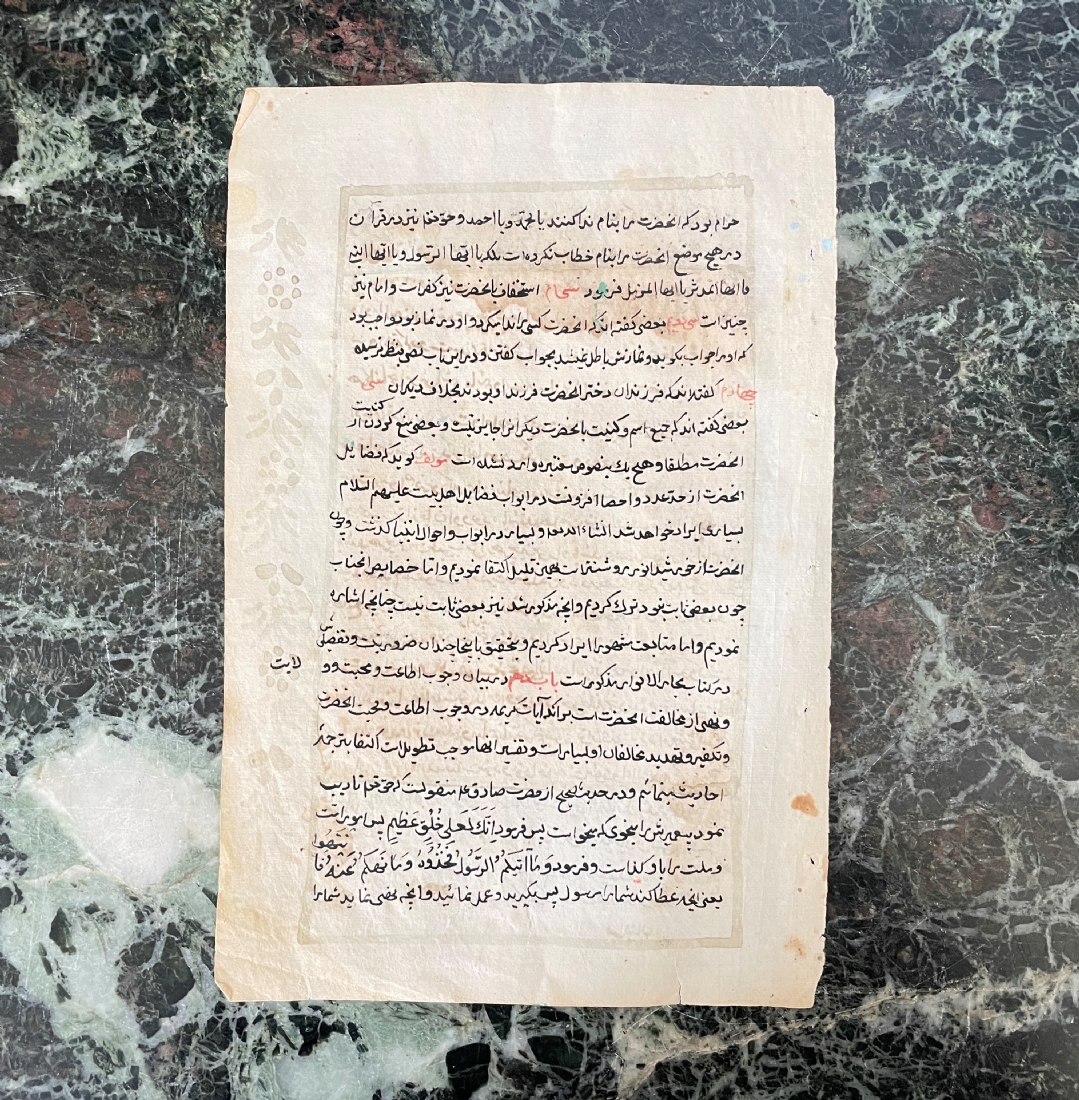 حرام بود که انحضرت را بنام ندا کنند یا محمد و یا احمد و حقتعالی نیز در قرآن
در هیچ موضع انحضرت را بنام خطاب نکرده است بلکه یا ایها الرسول و یا ایها النبی
یا ایها المدثر یا ایها المزمل فرمود استخفاف بانحضرت نیز کفر است و امام نیز
چنین است بعضی گفته اند که انحضرت کسی را ندا میکرد و او در نماز بود واجب بود
که او را جواب بگوید و نمازش باطل نمیشد بجواب گفتن و در این باب نصی بنظر نرسیده سی
چهارم گفته اند که فرزندان دختر انحضرت فرزند او بودند بخلاف دیگران
بعضی گفته اند که جمع اسم و کنیت بانحضرت دیگر انرا جایز نیست و بعضی منع کردن از کنیت
انحضرت مطلقا و هیچ یک بنصوص معتبره وارد نشده است مولف گوید که فضایل
انحضرت از حد عدد و احصا افزونست در ابواب فضایل اهل بیت علیهم السلام
بسیاری ایراد خواهد شد انشاء الله و بسیار در ابواب و احوال انبیا گذشت و چون
انحضرت از خورشید انور روشنتر است بهمین قلیل اکتفا نمودیم و اما خصایص انجناب
چون بعضی ثابت نبود ترک کردیم و انچه مذکور شد نیز بعضی ثابت نیست چنانچه اشاره
نمودیم و اما متابعت مشهور ایراد کردیم و تحقیق باینجا چندان ضرور نیست و تفصیلش
در کتاب بحار الانوار مذکور است باب دهم در بیان وجوب اطاعت و محبت و و
لایت
و نهی از مخالفت انحضرت است بدانکه آیات کریمه در وجوب اطاعت و محبت انحضرت
و تکفیر و تهدید مخالفان او بسیار است و تفسیر انها موجب تطویل است اکتفا بترجمه
احادیث مینمائیم و در حدیث صحیح از حضرت صادق ع منقولست که حقتعالی تادیب
نمود پیغمبرش را بنحوی که میخواست پس فرمود اِنَّکَ لَعَلی خُلُقٍ عَظیم پس امور امت
و ملت را باو گذاشت و فرمود وَ ما آتیکُم الرَّسُولُ فَخُذُوهُ وَ ما نَهیکُم عَنهُ فَا نتَهُوا
یعنی انچه عطا کند شما را رسول پس بگیرید و عمل نمائید و انچه نهی نماید شما را